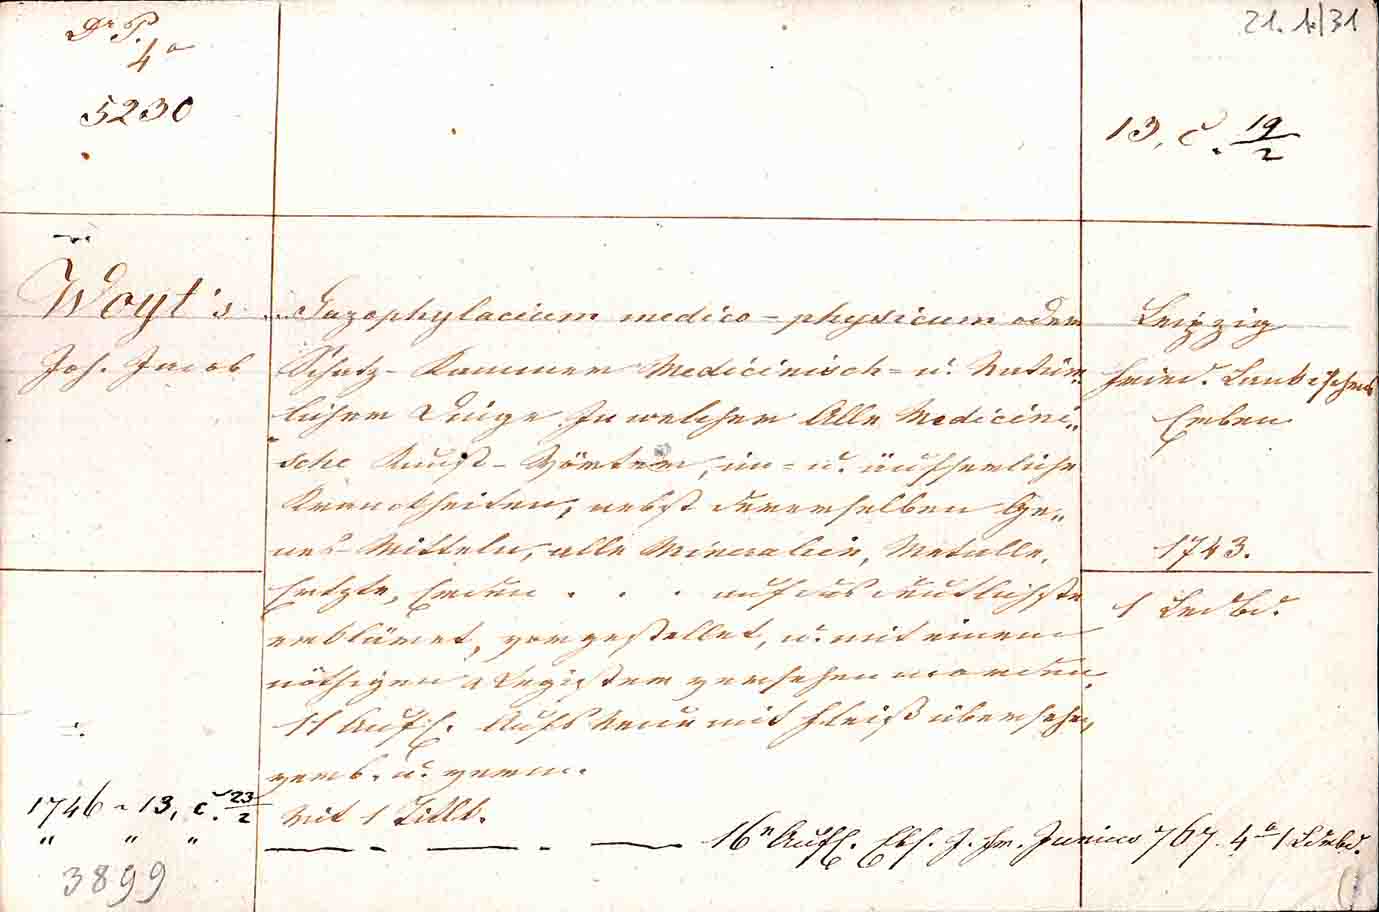 Dr. P.
4°
5230
21. 1./31
13, č. 19/2
Woyt's
Joh. Jacob
Gazophylacium medico-physicum oder
Schatz-Kammer Medicinisch- u. Natür„
licher Dinge. In welcher Alle Medicini„
sche Kunst-Wörter, in- u. äusserliche
Kranckheiten, nebst dererselben Ge„
nes-Mitteln, alle Mineralien, Metalle,
Ertzte, Erden . . . auf das deutlichste
erkläret, vorgestellet, u. mit einem
nöthigen Register versehen worden.
11 Aufl. Aufs Neue mit Fleiß übersehen,
verb. u. verm.
Mit 1 Titlb.
Leipzig
Fried. Lankischens
Erben
1743.
1 Ledbd.
1746 - 13, č. 23/2
„ „ „
— - — - — 16e Aufl. Ebf. J. Fr. Junius 767. 4° 1 Ldrbd.
3899